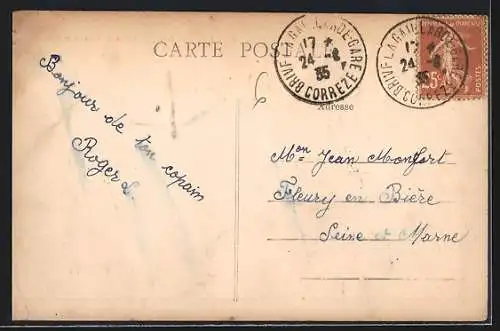 CARTE POSTALE
BRIVE LA GAILLARDE-GARE
17
24 -8
35
CORREZE
BRIVE LA GAILLARDE
17
24 8
35
CORREZE
POSTES
Adresse
Bonjour de ton copain
Roger L.
Mon Jean Monfort
Fleury en Bière
Seine et Marne